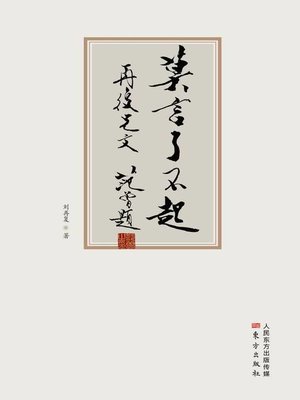 莫言了不起
再复兄文
范曾题
刘再复 著
人民东方出版传媒
东方出版社